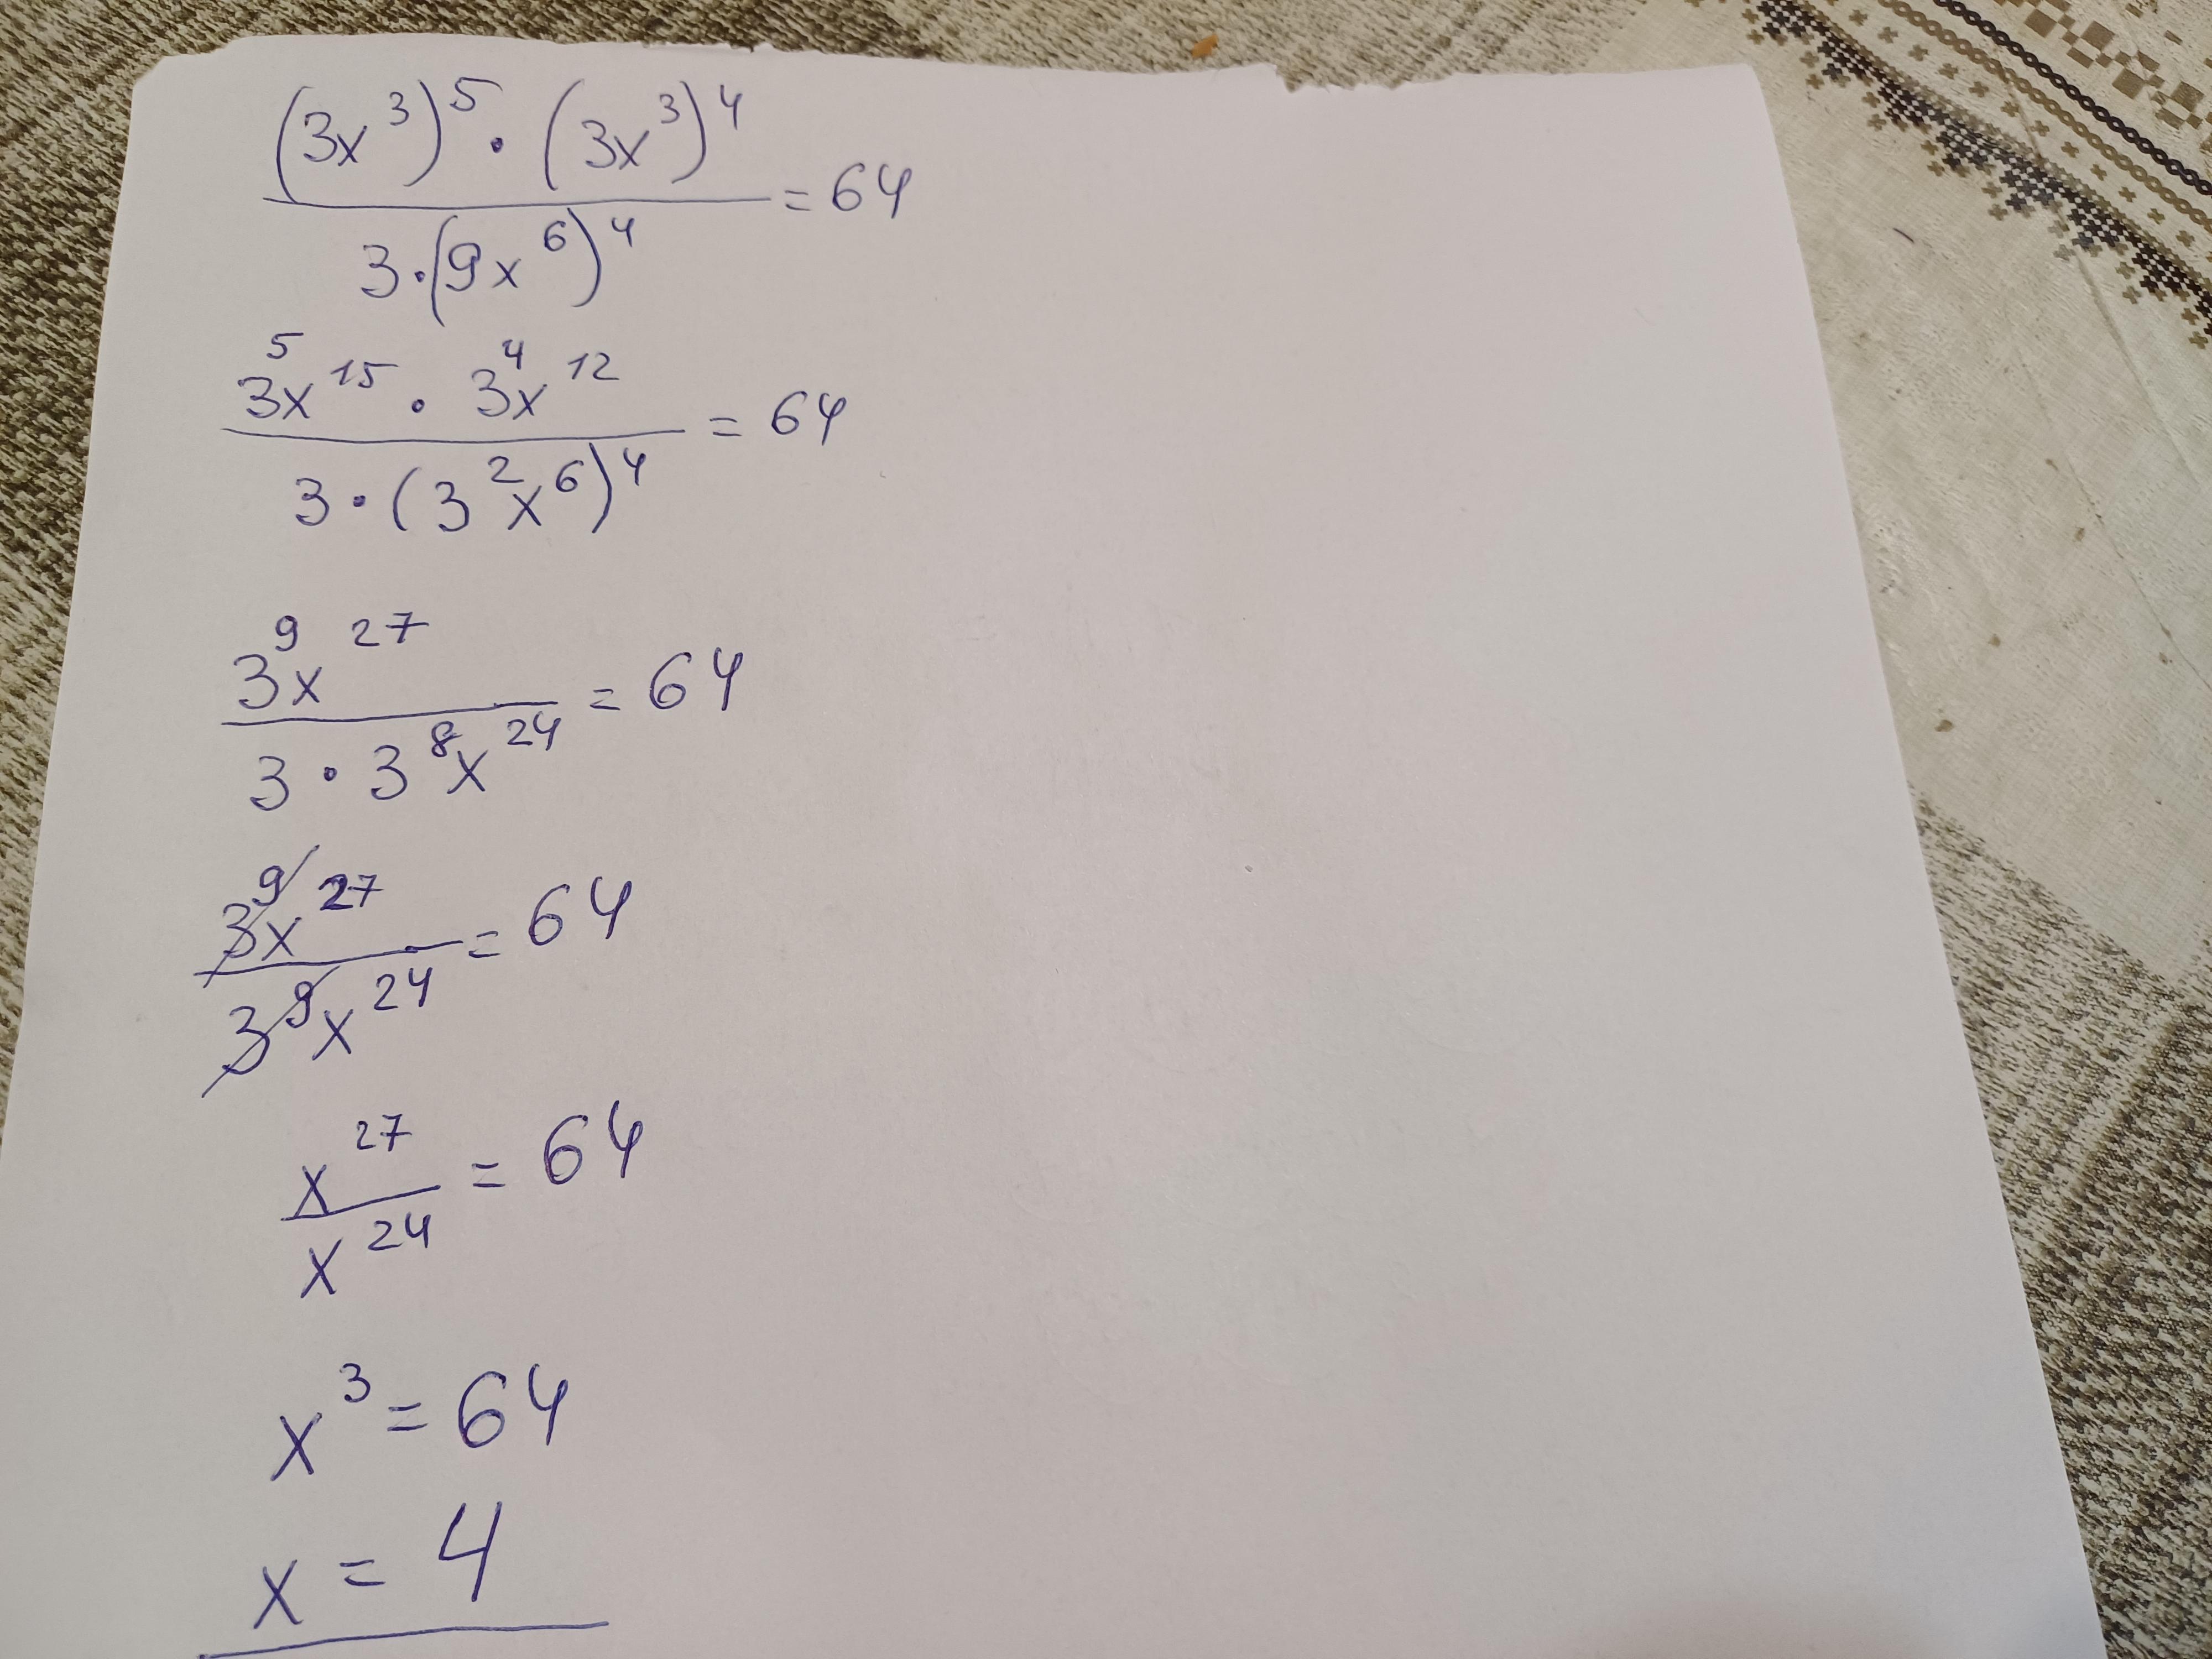 (3x³)⁵ · (3x³)⁴ / 3·(9x⁶)⁴ = 64
3⁵x¹⁵ · 3⁴x¹² / 3·(3²x⁶)⁴ = 64
3⁹x²⁷ / 3·3⁸x²⁴ = 64
3⁹x²⁷ / 3⁹x²⁴ = 64
x²⁷ / x²⁴ = 64
x³ = 64
x = 4